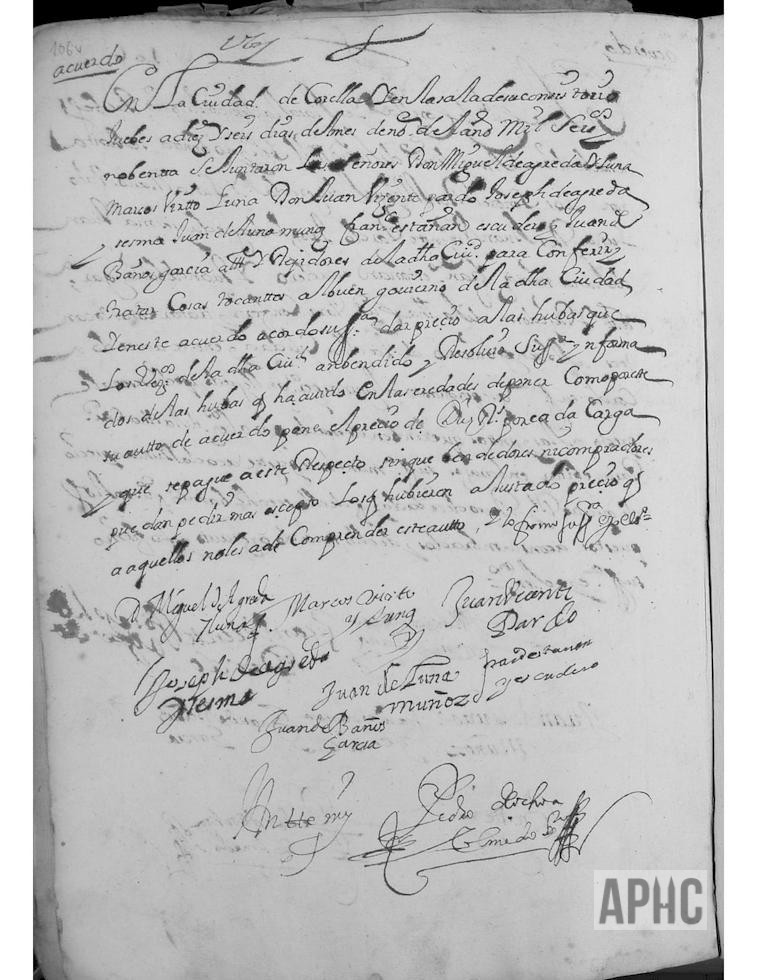 106v
acuerdo
En La Ciudad de Corella Y en la sala de su consistorio
Jueves a diez y seis dias del mes de no.e del año Mil Seis.s
nobentta Se Juntaron Los señores Don Miguel de agreda y Luna
Marco Virtto Luna Don Juan Vizente pardo Joseph de agreda
y sesma Juan de Luna munoz fran.co estañan escudero y Juan de
Baños garcia att.es Y Regidores de la dha Ciu.d para Conferir y
tratar Cosas tocanttes al buen govierno de la dha Ciudad
Y en este acuerdo acordo su ss.a dar precio a las hubas que
Los Vez.os de la dha Ciu.d an bendido y Resolvio Su ss.a ynforma
dos de las hubas q ha avido en las eredades de poner Como por este
su autto de acuerdo pone el precio de Diez R.s por cada Carga
y que se pague a este Respecto sin que bendedores ni compradores
puedan pedir mas escepto Los q hubieren aJustado precio q
a aquellos no les a de Comprender este autto, Y lo firmo su ss.a
D Miguel de Agreda
y Luna
Marcos Virto
y Luna
Juan Vicente
Pardo
Joseph de agreda
y Sesma
Juan de Luna
Muñoz
fran.co estanan
y escudero
Juan de Baños
Garcia
Antte my
Pedro Ochoa
Olmedo
APHC